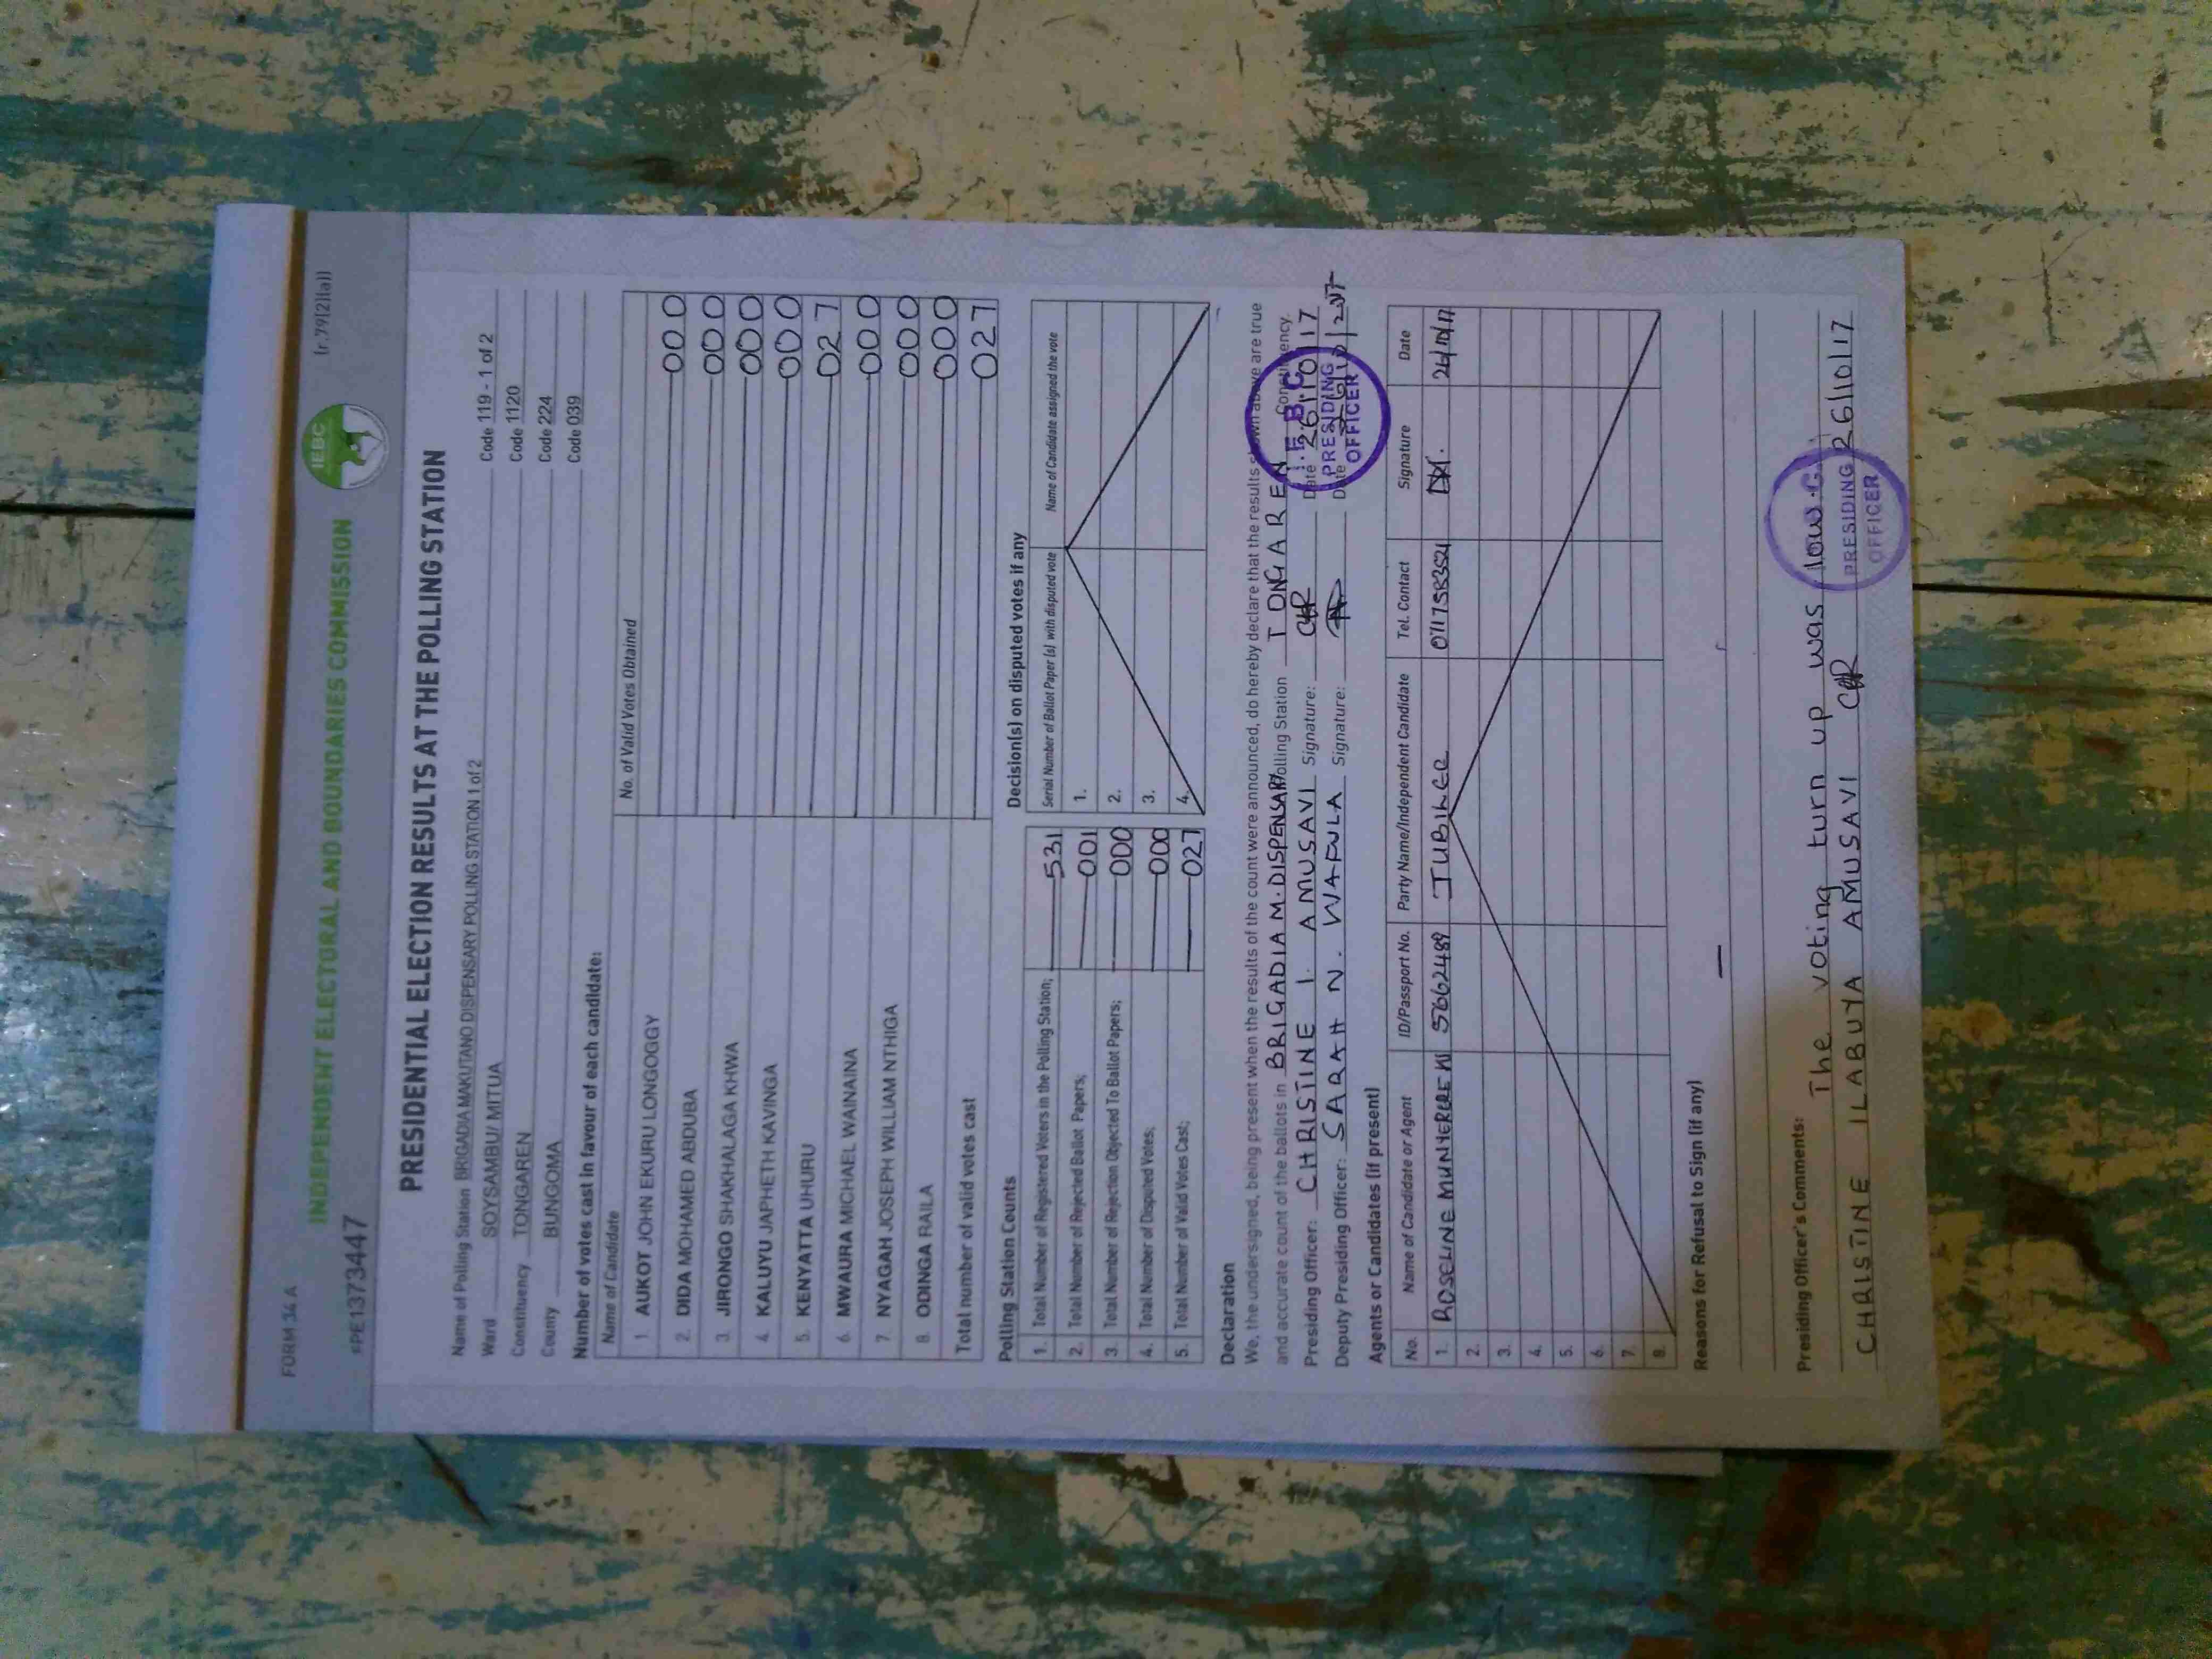 FORM 34A
(r.79(2)(a))
INDEPENDENT ELECTORAL AND BOUNDARIES COMMISSION
IEBC
1373447
PRESIDENTIAL ELECTION RESULTS AT THE POLLING STATION
Name of Polling Station BRIGADIA MAKUTANO DISPENSARY POLLING STATION 1 of 2 Code 119 - 1 of 2
Ward SOYSAMBU/ MITUA Code 1120
Constituency TONGAREN Code 224
County BUNGOMA Code 039
Number of votes cast in favour of each candidate:
Name of Candidate No. of Valid Votes Obtained
1. AUKOT JOHN EKURU LONGOGGY 000
2. DIDA MOHAMED ABDUBA 000
3. JIRONGO SHAKHALAGA KHWA 000
4. KALUYU JAPHETH KAVINGA 000
5. KENYATTA UHURU 027
6. MWAURA MICHAEL WAINAINA 000
7. NYAGAH JOSEPH WILLIAM NTHIGA 000
8. ODINGA RAILA 000
Total number of valid votes cast 027
Polling Station Counts
1. Total Number of Registered Voters in the Polling Station; 531
2. Total Number of Rejected Ballot Papers; 001
3. Total Number of Rejection Objected To Ballot Papers; 000
4. Total Number of Disputed Votes; 000
5. Total Number of Valid Votes Cast; 027
Decision(s) on disputed votes if any
Serial Number of Ballot Paper (s) with disputed vote Name of Candidate assigned the vote
1.
2.
3.
4.
Declaration
We, the undersigned, being present when the results of the count were announced, do hereby declare that the results shown above are true
and accurate count of the ballots in BRIGADIA M. DISPENSARY Polling Station TONGAREN Constituency.
Presiding Officer: CHRISTINE I. AMUSAVI Signature: Date 26/10/17
Deputy Presiding Officer: SARAH N. WAFULA Signature: Date
I.E.B.C
PRESIDING
OFFICER
Agents or Candidates (if present)
No. Name of Candidate or Agent ID/Passport No. Party Name/Independent Candidate Tel. Contact Signature Date
1. ROSELINE JUBILEE 26/10/17
2.
3.
4.
5.
6.
7.
8.
Reasons for Refusal to Sign (if any)
Presiding Officer's Comments: The voting turn up was low.
CHRISTINE ILABUYA AMUSAVI 26/10/17
PRESIDING
OFFICER